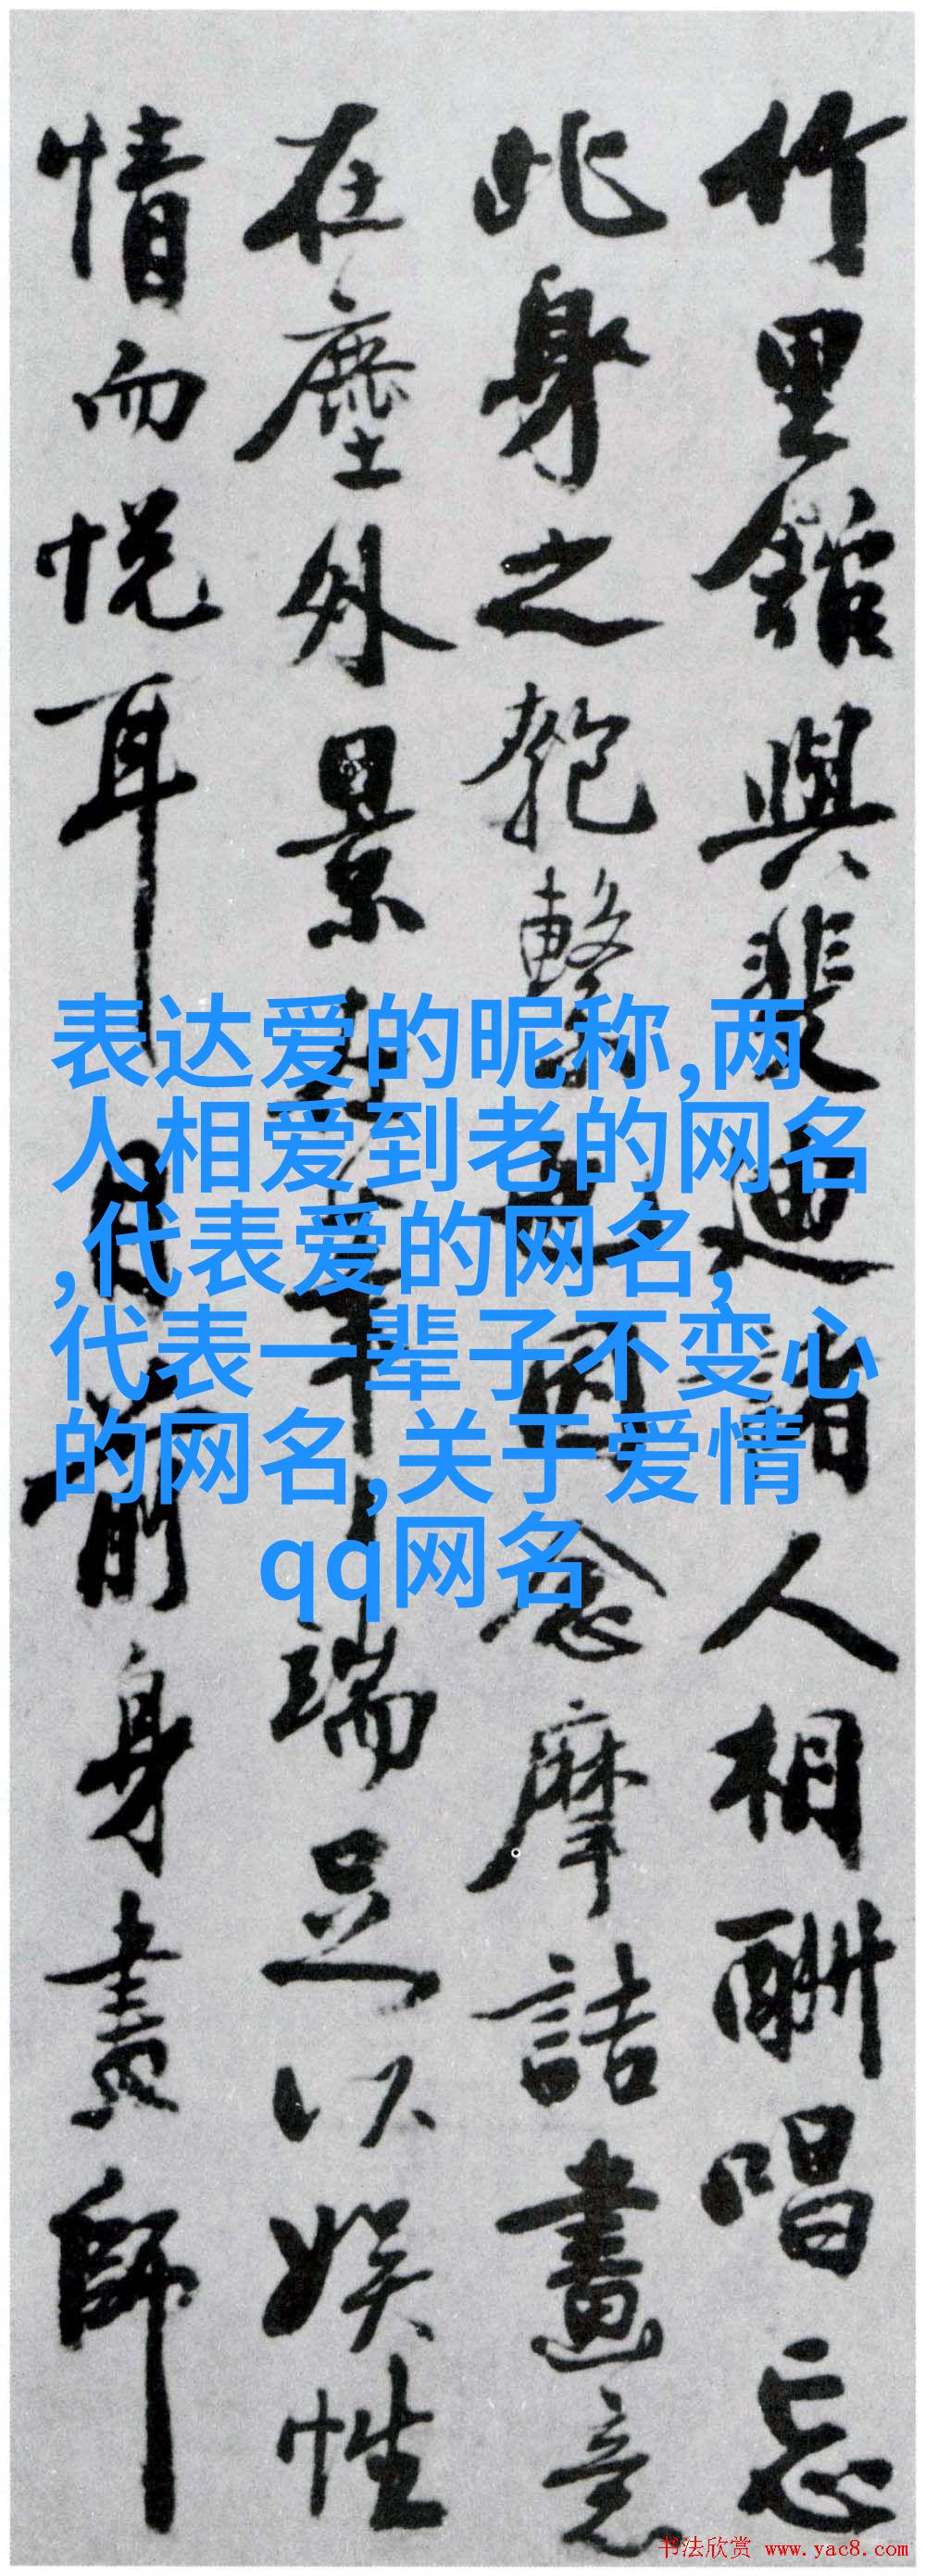 竹里館與裴迪諸人相酬唱忘
此身之匏繫也因念摩詰畫意
在塵外景
端足以娛性
情而悅耳目前身畫師
表达爱的昵称,两
人相爱到老的网名
,代表爱的网名,
代表一辈子不变心
的网名,关于爱情
qq网名
书法欣赏 www.yac8.com